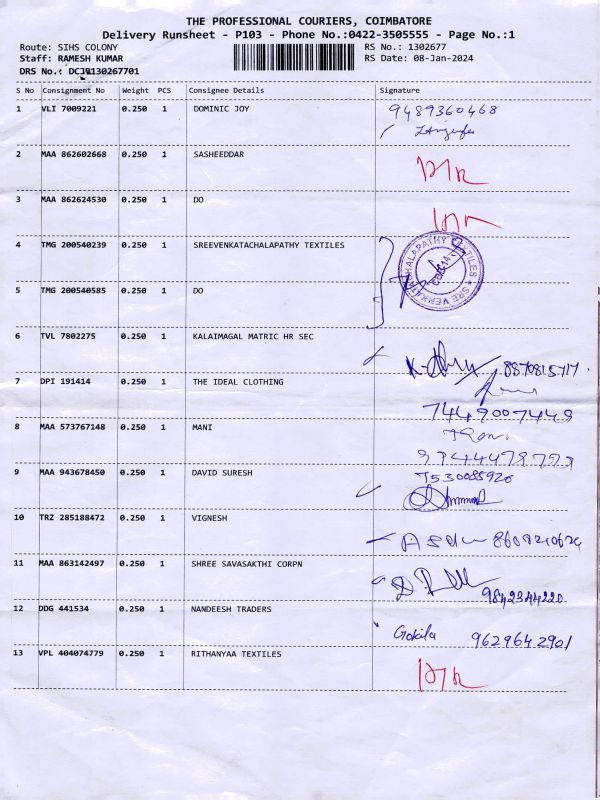 THE PROFESSIONAL COURIERS, COIMBATORE
Delivery Runsheet - P103 - Phone No.:0422-3505555 - Page No.:1
Route: SIHS COLONY RS No.: 1302677
Staff: RAMESH KUMAR RS Date: 08-Jan-2024
DRS No.: 130267701
S No Consignment No Weight PCS Consignee Details Signature
1 VLI 7009221 0.250 1 DOMINIC JOY 9489360468
2 MAA 862602668 0.250 1 SASHEEDDAR
3 MAA 862624530 0.250 1 DO
4 TMG 200540239 0.250 1 SREEVENKATACHALAPATHY TEXTILES
SRE VENKATACHALAPATHY TEXTILES
5 TMG 200540585 0.250 1 DO
6 TVL 7802275 0.250 1 KALAIMAGAL MATRIC HR SEC 8870815717
7 DPI 191414 0.250 1 THE IDEAL CLOTHING
7449007449
8 MAA 573767148 0.250 1 MANI
9 MAA 943678450 0.250 1 DAVID SURESH 7530085920
10 TRZ 285188472 0.250 1 VIGNESH
11 MAA 863142497 0.250 1 SHREE SAVASAKTHI CORPN
9842344220
12 DDG 441534 0.250 1 NANDEESH TRADERS
Gokila 9629642901
13 VPL 404074779 0.250 1 RITHANYAA TEXTILES